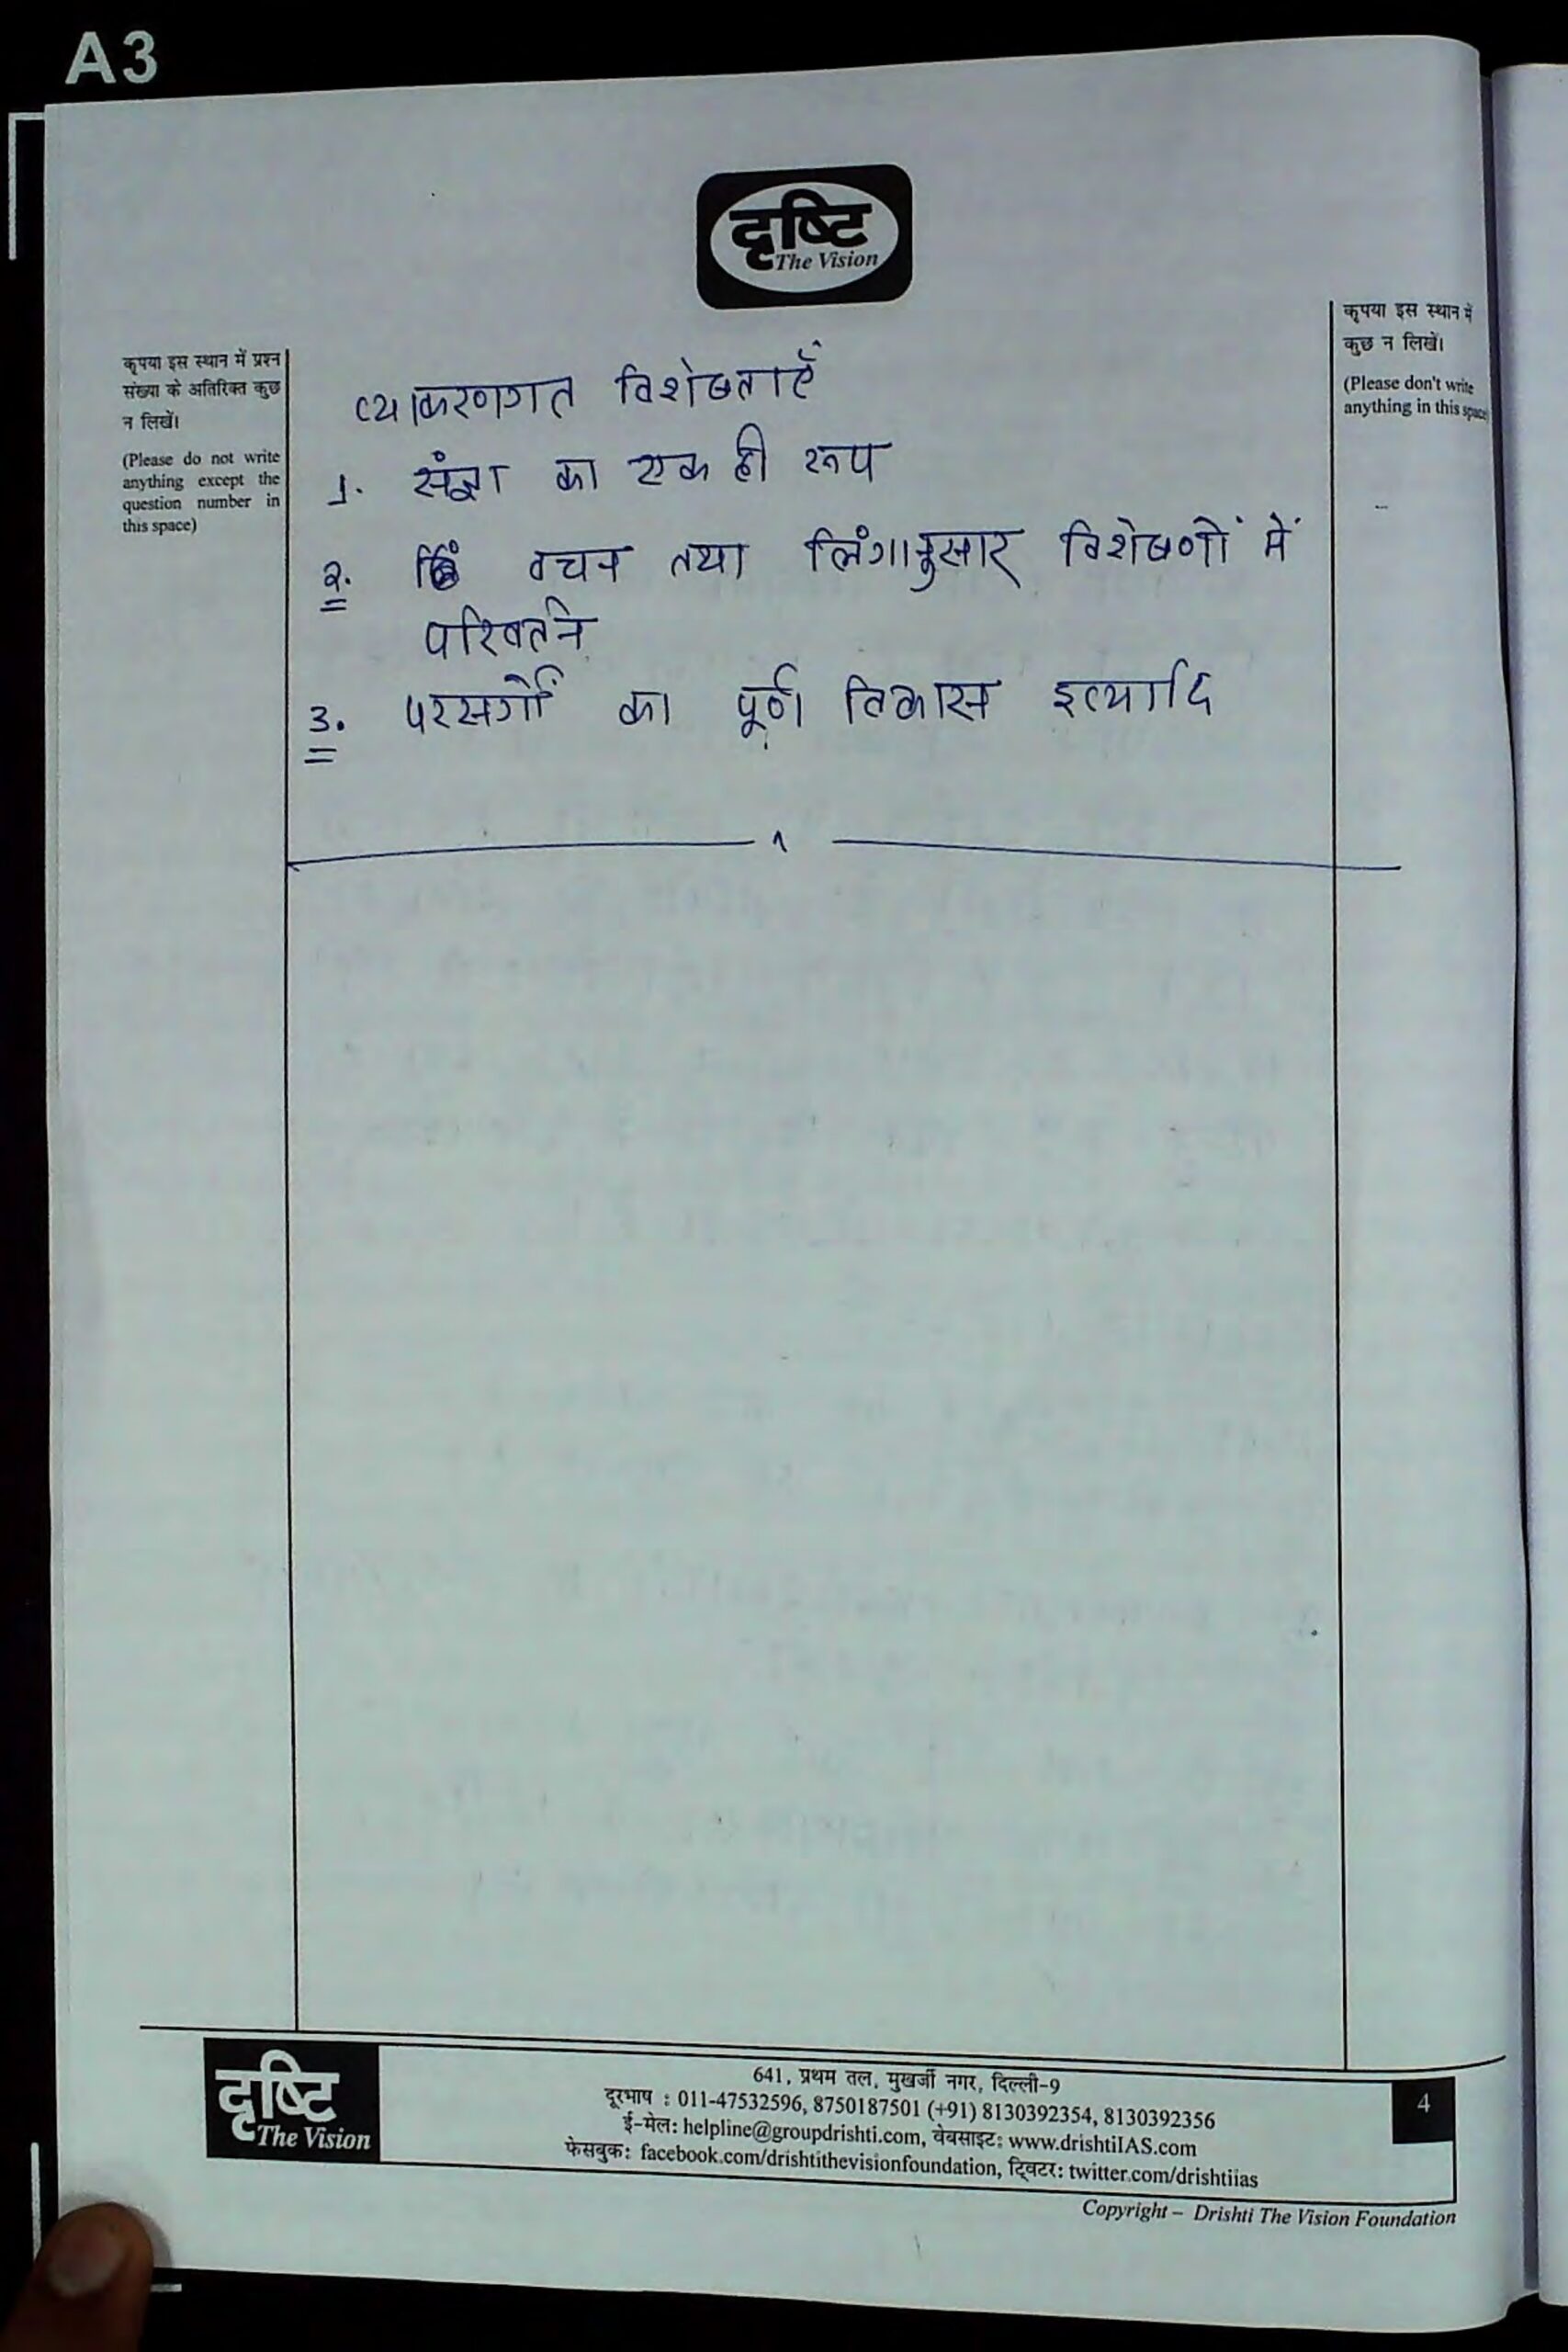 A3
दृष्टि
The Vision
कृपया इस स्थान में प्रश्न
संख्या के अतिरिक्त कुछ
न लिखें।
(Please do not write
anything except the
question number in
this space)
कृपया इस स्थान में
कुछ न लिखें।
(Please don't write
anything in this space)
व्याकरणगत विशेषताएँ
1. संज्ञा का एक ही रूप
2. वचन तथा लिंगानुसार विशेषणों में
परिवर्तन
3. परसर्गों का पूर्ण विकास इत्यादि
दृष्टि
The Vision
641, प्रथम तल, मुखर्जी नगर, दिल्ली-9
दूरभाष : 011-47532596, 8750187501 (+91) 8130392354, 8130392356
ई-मेल: helpline@groupdrishti.com, वेबसाइट: www.drishtiIAS.com
फेसबुक: facebook.com/drishtithevisionfoundation, ट्विटर: twitter.com/drishtiias
4
Copyright – Drishti The Vision Foundation